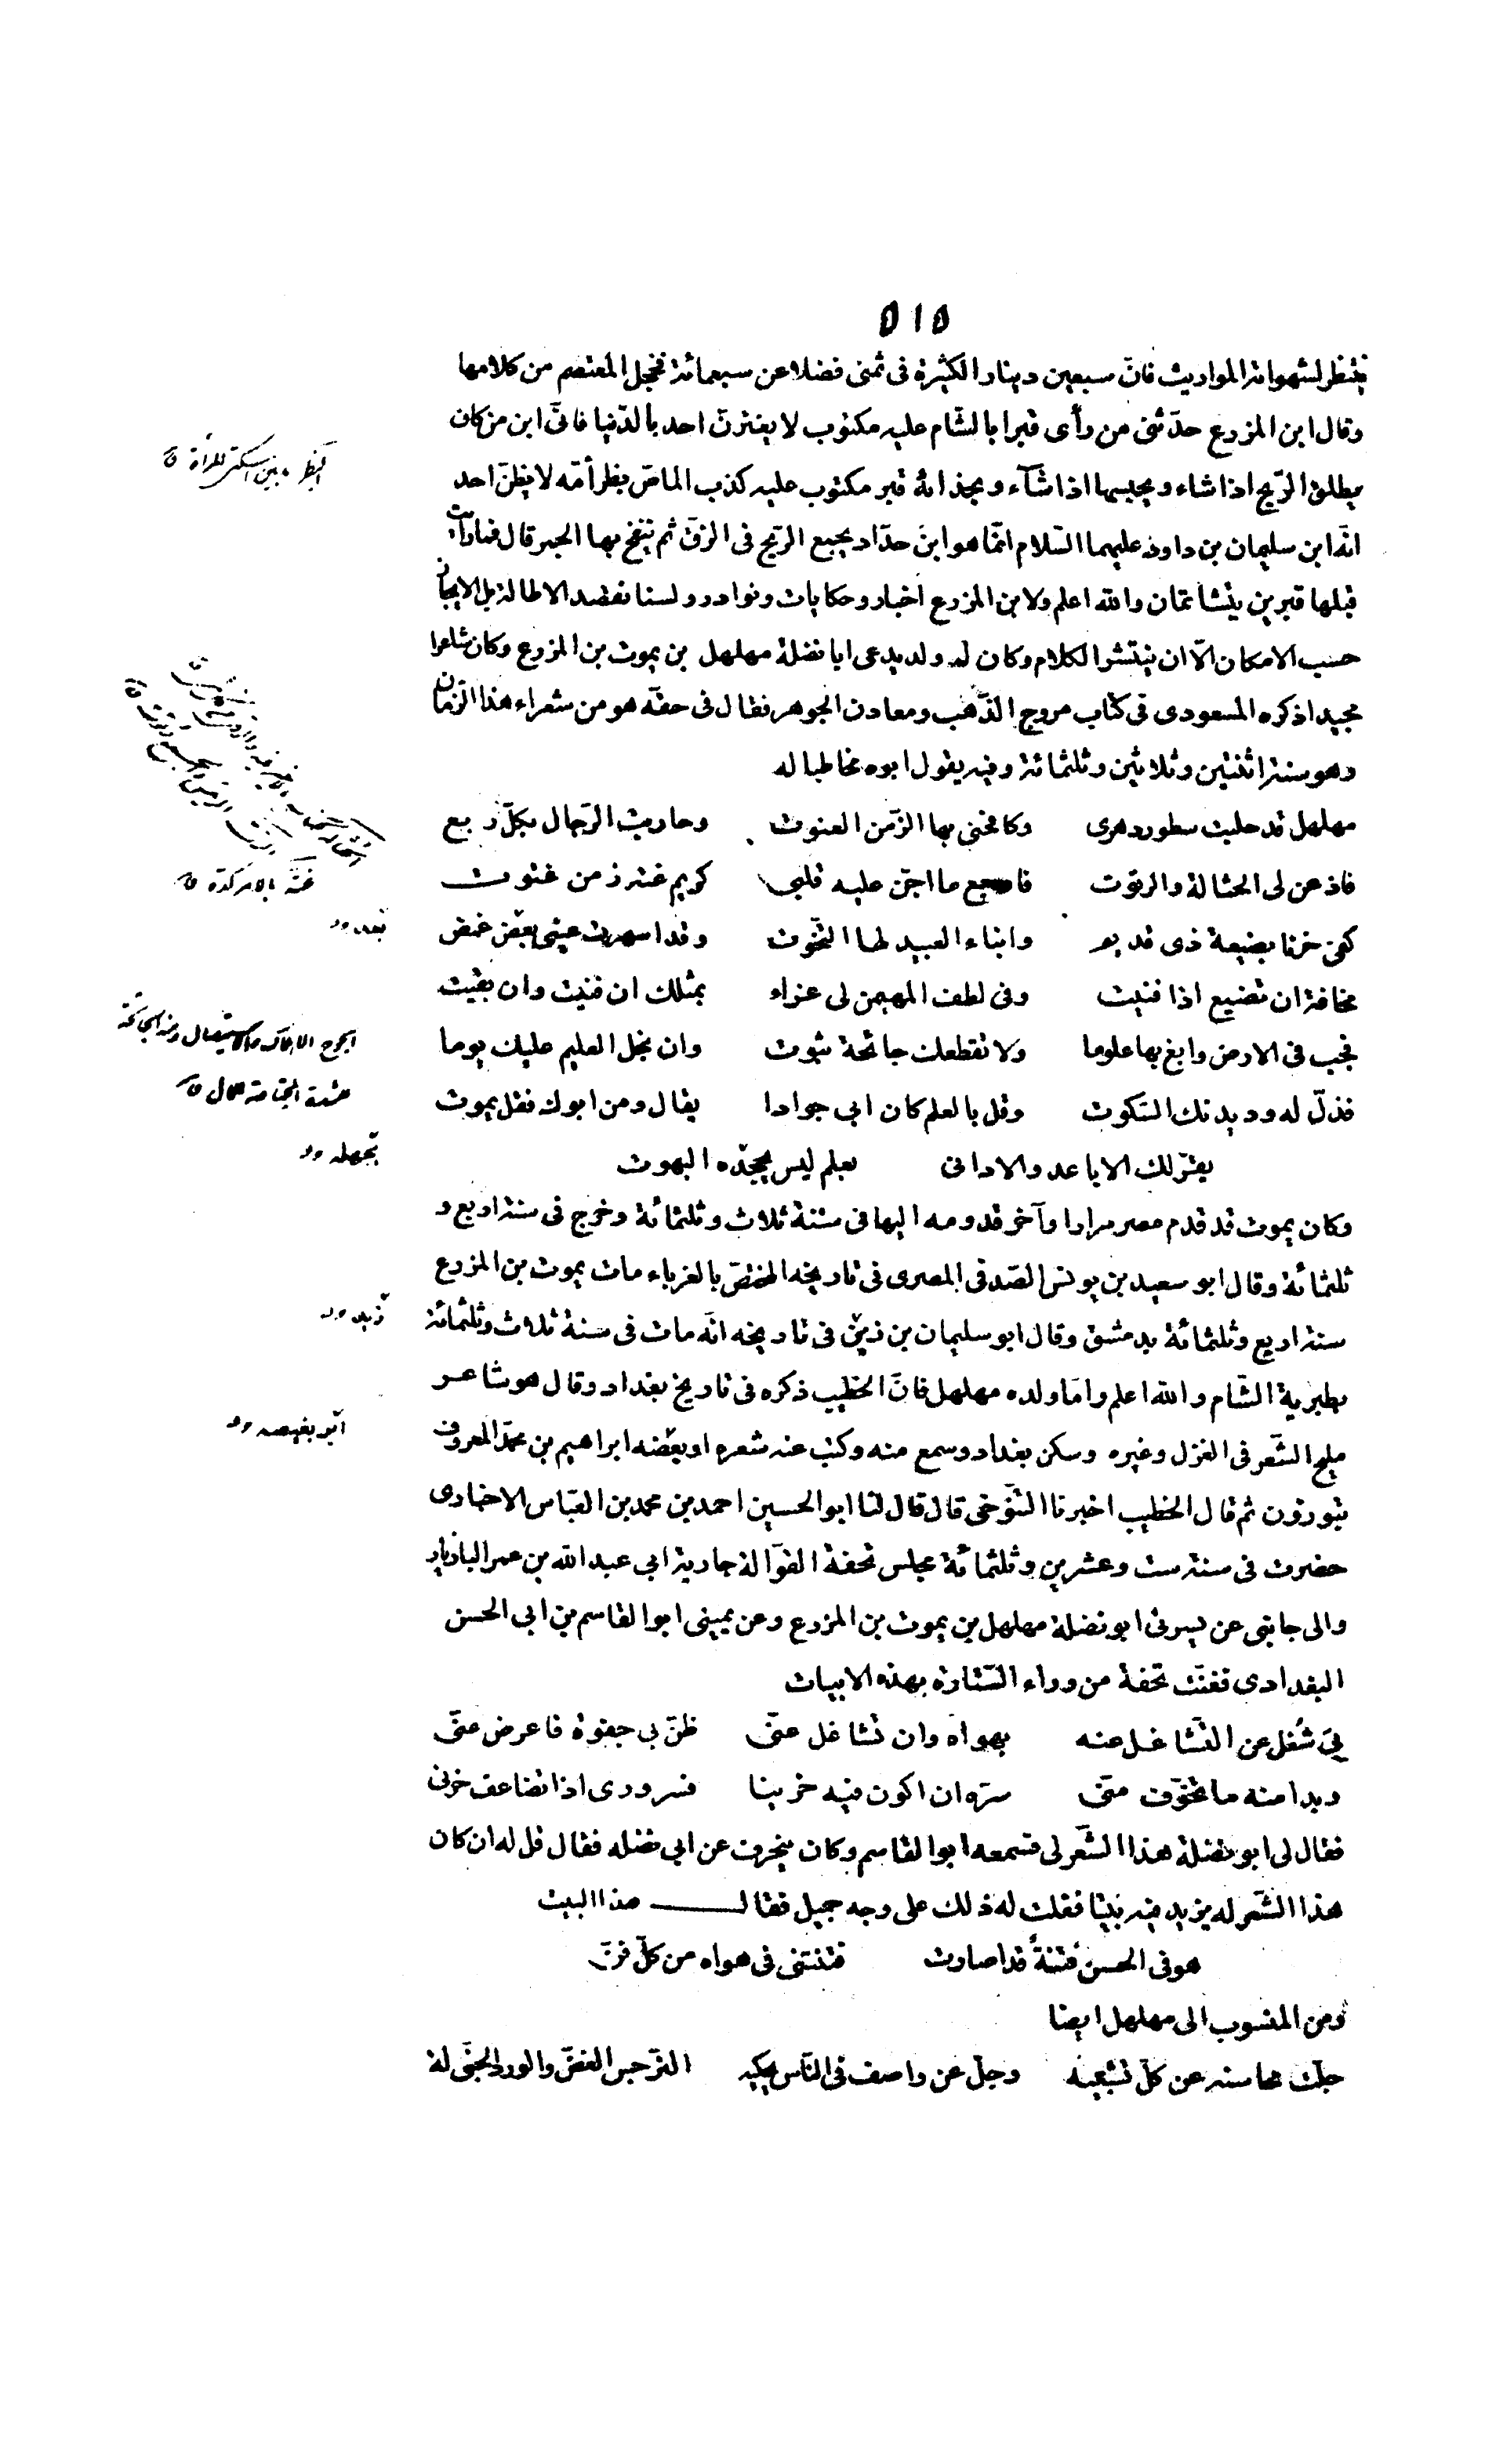 ٥١٥
ينتظر لشهواته المواريث فانّ سبعين دينار الكثيرة فى ثمنى فضلا عن سبعمائة فخجل المعتصم من كلامها
وقال ابن المزرع حدّثنى من رأى قبرا بالشام عليه مكتوب لا يغترنّ احد بالدّنيا فانّى ابن من كان
يطلق الرّيح اذا شاء ويحبسها اذا شآء وبحذائه قبر مكتوب عليه كذب الماصّ بظر أمّه لا يظنّ احد
انّه ابن سليمان بن داود عليهما السّلام انّما هو ابن حدّاد يجمع الرّيح فى الزقّ ثم ينفخ بها الجمر قال فما رأيت
قبلها قبرين يتشاتمان والله اعلم ولابن المزرع اخبار وحكايات ونوادر ولسنا نقصد الاطالة بل الايجاز
حسب الامكان الّا ان ينتشر الكلام وكان له ولد يدعى ابا نضلة مهلهل بن يموت بن المزرع وكان شاعرا
مجيدا ذكره المسعودى فى كتاب مروج الذّهب ومعادن الجوهر فقال فى حقّه هو من شعراء هذا الزمان
وهو سنة اثنتين وثلاثين وثلثمائة وفيه يقول ابوه مخاطبا له
مهلهل قد حلبت سطور دهرى وكافحنى بها الزّمن العنوت وحاربت الرّجال بكلّ ربع
فاذعن لى الحثالة والرتوت فاوجع ما اجنّ عليه قلبى كريم غته زمن غتوت
كفى حزنا بضيعة ذى قديم وابناء العبيد لها التّخوت وقد اسهرت عينى بعض غمض
مخافة ان تضيع اذا فنيت وفى لطف المهيمن لى عزاء بمثلك ان فنيت وان بقيت
فجب فى الارض وابغ بها علوما ولا تقطعك جائحة ثبوت وان بخل العليم عليك يوما
فذلّ له وديدنك السّكوت وقل بالعلم كان ابى جوادا يقال ومن ابوك فقل يموت
يقرّ لك الاباعد والادانى بعلم ليس يجحده البهوت
وكان يموت قد قدم مصر مرارا وآخر قدومه اليها فى سنة ثلاث وثلثمائة وخرج فى سنة اربع و
ثلثمائة وقال ابو سعيد بن يونس الصّدفى المصرى فى تاريخه المختصّ بالغرباء مات يموت بن المزرع
سنة اربع وثلثمائة بدمشق وقال ابو سليمان بن زين فى تاريخه انّه مات فى سنة ثلاث وثلثمائة
بطبرية الشّام والله اعلم وامّا ولده مهلهل فانّ الخطيب ذكره فى تاريخ بغداد وقال هو شاعر
مليح الشّعر فى الغزل وغيره وسكن بغداد وسمع منه وكتب عنه شعره او بعضه ابراهيم بن محمّد المعروف
بتوزون ثم قال الخطيب اخبرنا التنّوخى قال قال لنا ابو الحسين احمد بن محمد بن العبّاس الاخبارى
حضرت فى سنة ست وعشرين وثلثمائة مجلس تحفة القوّالة جارية ابى عبد الله بن عمر البازيار
والى جانبى عن يسرتى ابو نضلة مهلهل بن يموت بن المزرع وعن يمينى ابو القاسم بن ابى الحسن
البغدادى فغنّت تحفة من وراء السّتارة بهذه الابيات
بى شُغل عن التّشاغل عنه بهواه وان تشاغل عنّى ظنّ بى جفوة فاعرض عنّى
وبدا منه ما تخوّف منّى سرّه ان اكون فيه حزينا فسرورى اذا تضاعف حزنى
فقال لى ابو نضلة هذا الشّعر لى فسمعه ابو القاسم وكان ينحرف عن ابى نضله فقال قل له ان كان
هذا الشّعر له يزيد فيه بيتا فقلت له ذلك على وجه جميل فقال هذا البيت
هو فى الحسن فتنةٌ قد اصارت فتنتى فى هواه من كلّ فنّ
ومن المنسوب الى مهلهل ايضا
جلّت محاسنه عن كلّ تشبيه وجلّ عن واصف فى النّاس يحكيه النّرجس الغضّ والورد الجنىّ له
البظر بين اسكتى المرأة
غتّه بالامر كدّه
تجهله
زبيد